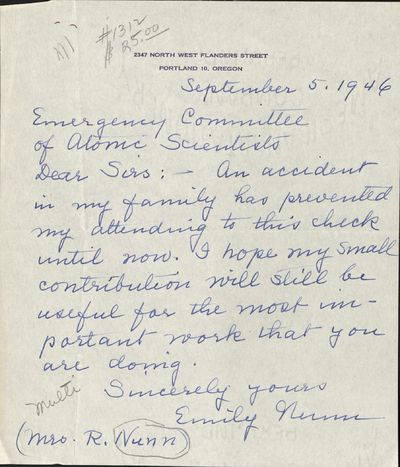 #1312
$25.00
2347 NORTH WEST FLANDERS STREET
PORTLAND 10, OREGON
September 5, 1946
Emergency Committee
of Atomic Scientists
Dear Sirs: — An accident
in my family has prevented
my attending to this check
until now. I hope my small
contribution will still be
useful for the most im-
portant work that you
are doing.
Sincerely yours
multi
Emily Nunn
(Mrs. R. Nunn)